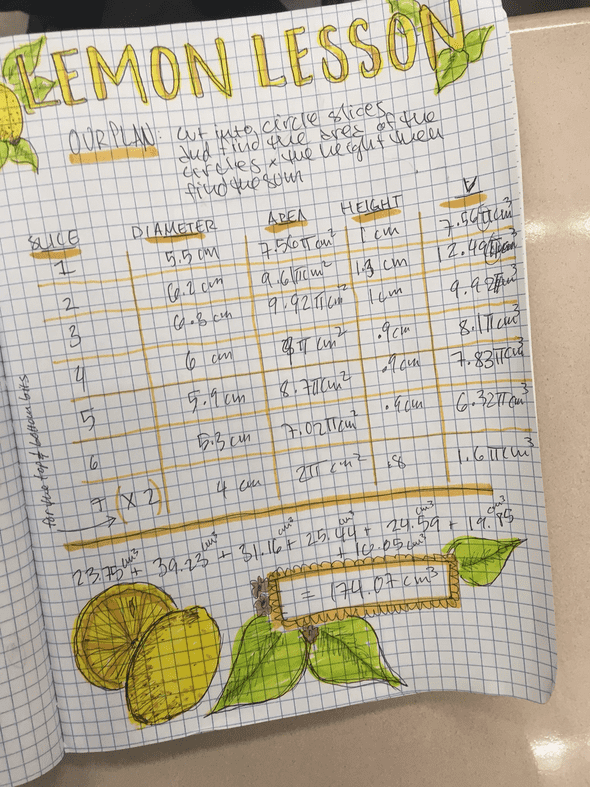 LEMON LESSON
OUR PLAN: cut into circle slices
and find the area of the
circles x the height then
find the sum
SLICE DIAMETER AREA HEIGHT V
1 5.5 cm 7.56πcm² 1 cm 7.56πcm³
2 6.2 cm 9.61πcm² 1.3 cm 12.49πcm³
3 6.3 cm 9.92πcm² 1cm 9.92πcm³
4 6 cm 9π cm² .9cm 8.1πcm³
5 5.9 cm 8.7πcm² .9cm 7.83πcm³
6 5.3 cm 7.02πcm² .9 cm 6.32πcm³
7 (x 2) 4 cm 2π cm² .8 1.6πcm³
for the top & bottom bits
23.75cm³ + 39.23cm³ + 31.16cm³ + 25.44cm³ + 24.59cm³ + 19.85
+ 10.05cm³
= 174.07 cm³